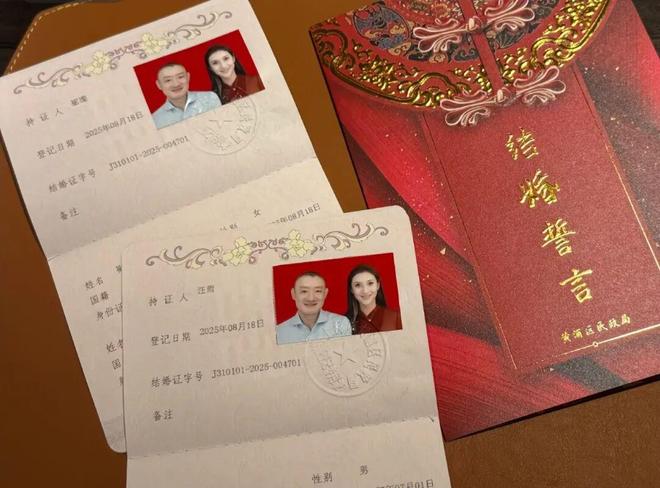 持证人
登记日期 2025年08月18日
结婚证字号 J310101-2025-004701
备注
女
08月18日
姓名
国籍
身份证
姓名
国
持证人
登记日期 2025年08月18日
结婚证字号 J310101-2025-004701
备注
性别 男
07月01日
结婚誓言
黄浦区民政局